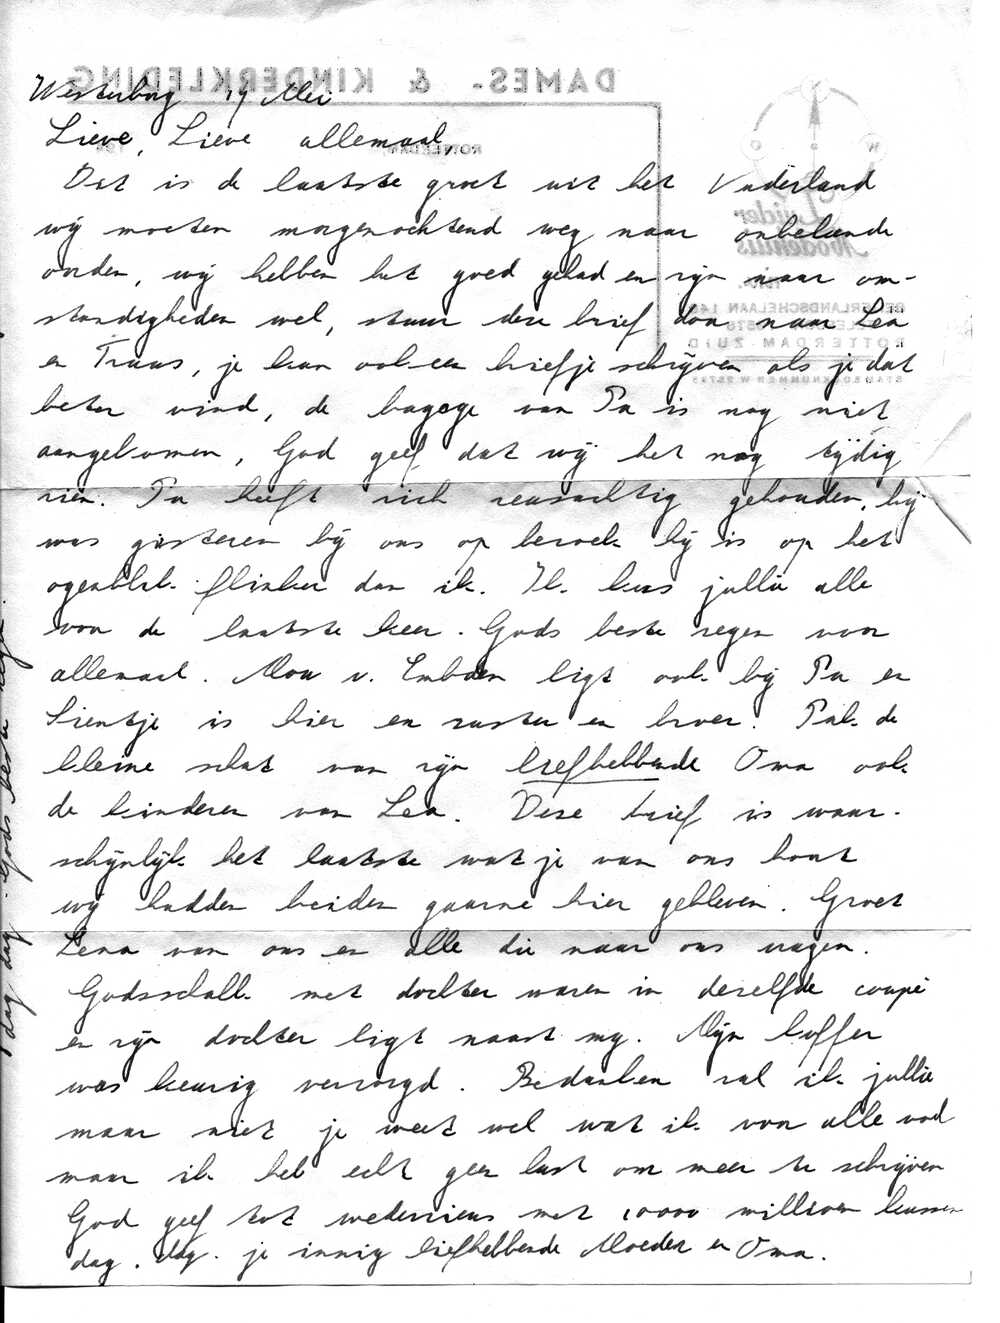 Westerborg 17 Mei
Lieve, Lieve allemaal,
Dit is de laatste groet uit het Vaderland
wij moeten morgenochtend weg naar onbekende
orden, wij hebben het goed gehad en zijn naar om-
standigheden wel, stuur deze brief door naar Lea
en Truus, je kan ook een briefje schrijven als je dat
beter vind, de bagage van Pa is nog niet
aangekomen, God geef dat wij het nog tijdig
zien. Pa heeft zich reusachtig gehouden, hij
was gisteren bij ons op bezoek hij is op het
ogenblik flinker dan ik. Ik kus jullie alle
voor de laatste keer. Gods beste zegen voor
allemaal. Mou v. Embden ligt ook bij Pa en
Sientje is hier en zuster en broer. Pak de
kleine schat van zijn liefhebbende Oma ook
de kinderen van Lea. Deze brief is waar-
schijnlijk het laatste wat je van ons hoort
wij hadden beiden gaarne hier gebleven. Groet
Lena van ons en alle die naar ons vragen.
Godsschalk met dochter waren in dezelfde coupé
en zijn dochter ligt naast mij. Mijn koffer
was keurig verzorgd. Bedanken zal ik jullie
maar niet je weet wel wat ik voor alle voel
maar ik heb echt geen lust om meer te schrijven
God geef tot wederziens met 10000 millioen kussen
dag. dag. je innig liefhebbende Moeder en Oma.
dag dag. Gods beste zegen.
DAMES- & KINDERKLEDING
ROTTERDAM, 194
ROTTERDAM-ZUID